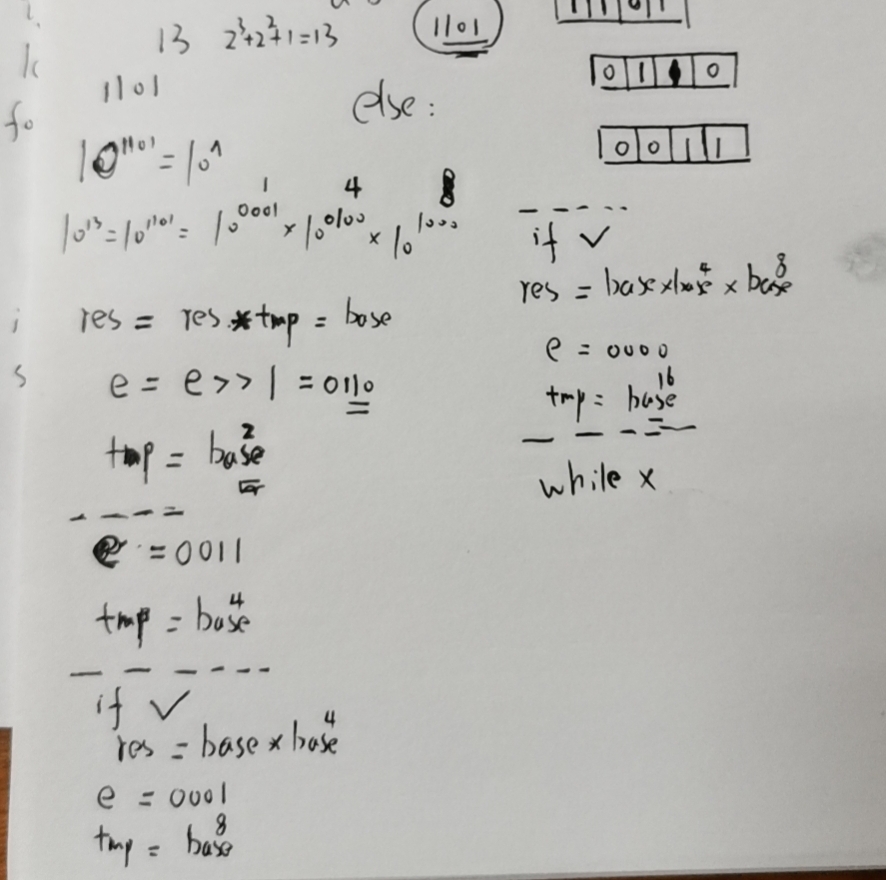 13 2³+2²+1=13
1101
1101
else:
10¹¹⁰¹ = 10^
1 4 8
10¹³ = 10¹¹⁰¹ = 10⁰⁰⁰¹ × 10⁰¹⁰⁰ × 10¹⁰⁰⁰
res = res * tmp = base
e = e >> 1 = 0110
tmp = base²
e = 0011
tmp = base⁴
if ✓
res = base × base⁴
e = 0001
tmp = base⁸
1101
0110
0011
if ✓
res = base × base⁴ × base⁸
e = 0000
tmp = base¹⁶
while ×